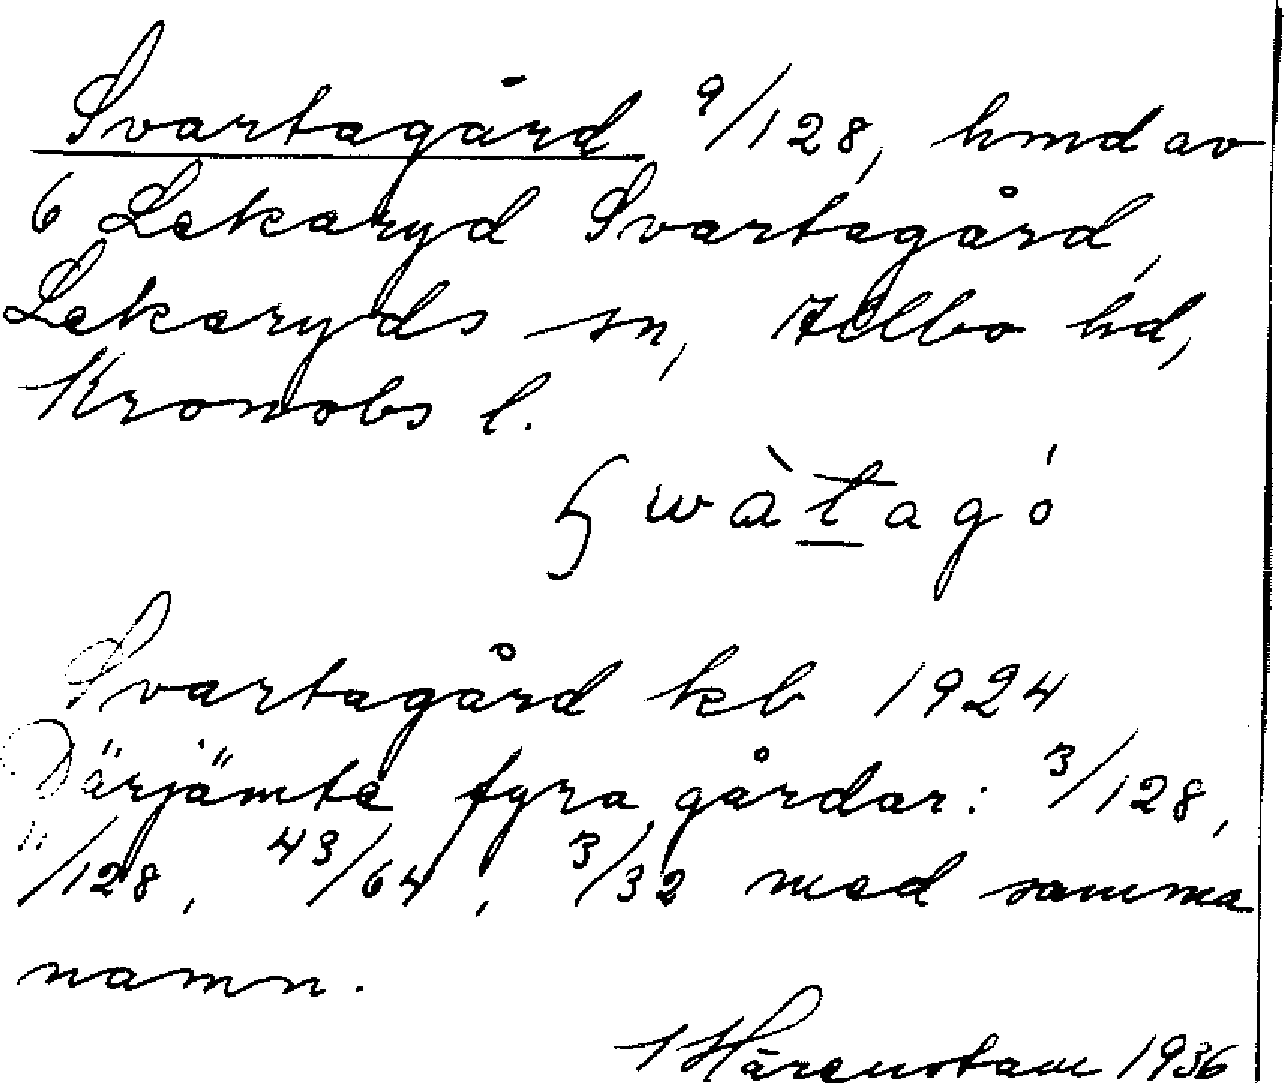 Svartagård 9/128, hmd av
6 Lekaryd Svartagård,
Lekaryds sn, Allbo hd,
Kronobs l.
swàtagó
Svartagård kb 1924
Därjämte fyra gårdar: 3/128,
11/128, 43/64, 3/32 med samma
namn.
Härenstam 1936